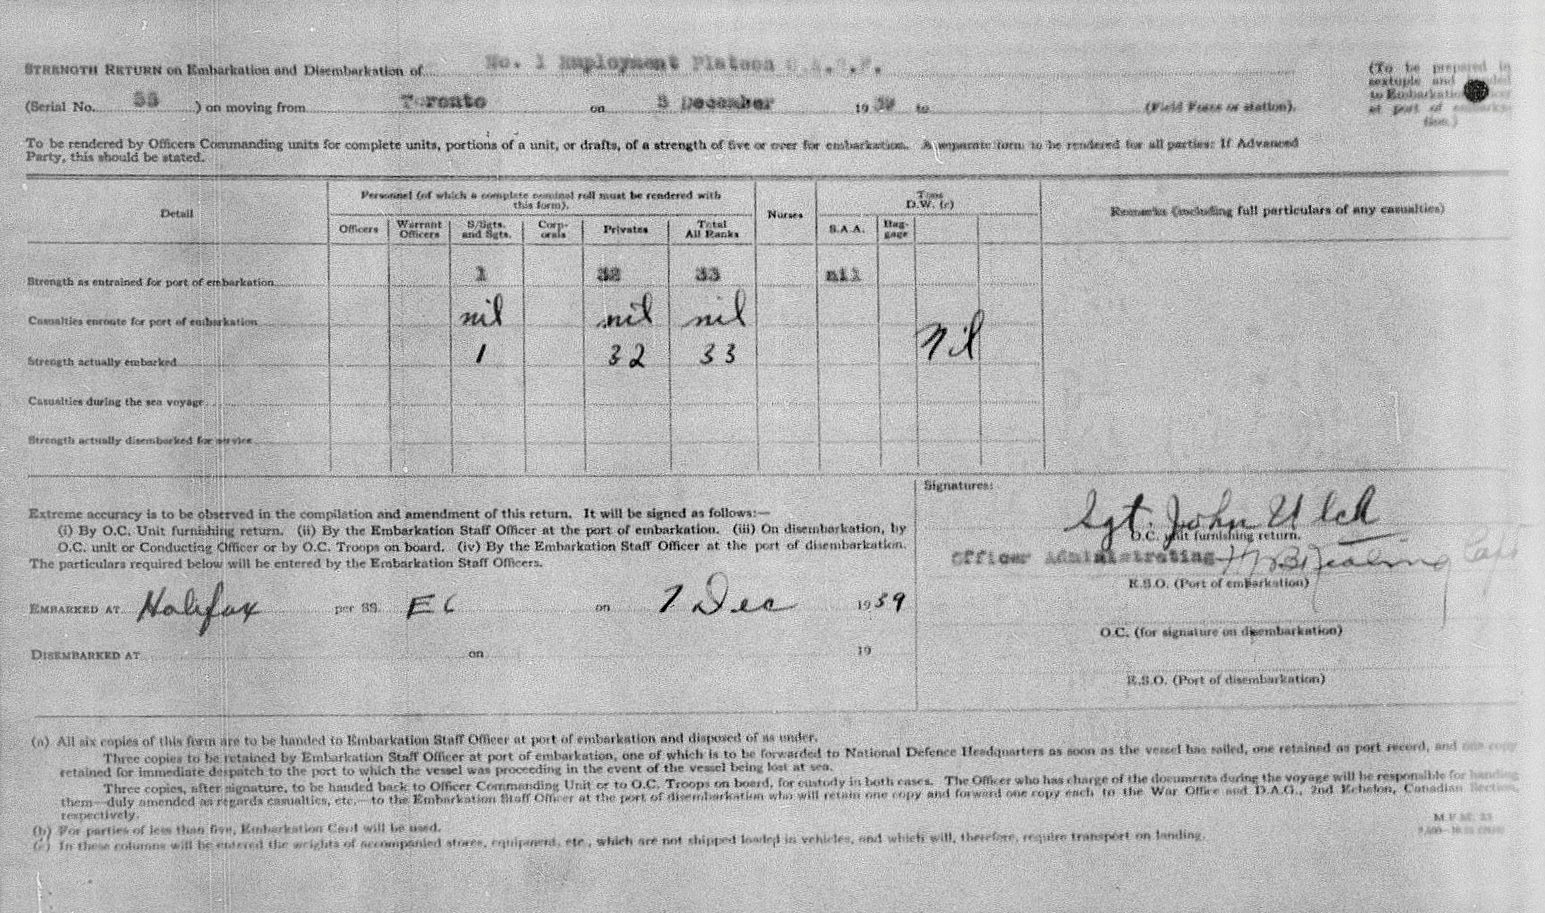 STRENGTH RETURN on Embarkation and Disembarkation of No. 1 Employment Platoon C.A.S.F.
(To be prepared in sextuple and handed to Embarkation at port of embarkation.)
(Serial No. 33 ) on moving from Toronto on 3 December 19 39 to (Field Force or station).
To be rendered by Officers Commanding units for complete units, portions of a unit, or drafts, of a strength of five or over for embarkation. A separate form to be rendered for all parties: If Advanced
Party, this should be stated.
Detail
Personnel (of which a complete nominal roll must be rendered with
this form).
Nurses
Tons
D.W. (c)
Remarks (including full particulars of any casualties)
Officers Warrant Officers S/Sgts. and Sgts. Corp-orals Privates Total All Ranks S.A.A. Bag-gage
Strength as entrained for port of embarkation 1 32 33 nil
Casualties enroute for port of embarkation nil nil nil
Strength actually embarked 1 32 33 Nil
Casualties during the sea voyage
Strength actually disembarked for service
Extreme accuracy is to be observed in the compilation and amendment of this return. It will be signed as follows:—
(i) By O.C. Unit furnishing return. (ii) By the Embarkation Staff Officer at the port of embarkation. (iii) On disembarkation, by
O.C. unit or Conducting Officer or by O.C. Troops on board. (iv) By the Embarkation Staff Officer at the port of disembarkation.
The particulars required below will be entered by the Embarkation Staff Officers.
EMBARKED AT Halifax per SS. E6 on 7 Dec 1939
DISEMBARKED AT on 19
Signatures:
Sgt. John
O.C. unit furnishing return.
Officer Administrating
E.S.O. (Port of embarkation)
O.C. (for signature on disembarkation)
E.S.O. (Port of disembarkation)
(a) All six copies of this form are to be handed to Embarkation Staff Officer at port of embarkation and disposed of as under.
Three copies to be retained by Embarkation Staff Officer at port of embarkation, one of which is to be forwarded to National Defence Headquarters as soon as the vessel has sailed, one retained as port record, and one copy
retained for immediate despatch to the port to which the vessel was proceeding in the event of the vessel being lost at sea.
Three copies, after signature, to be handed back to Officer Commanding Unit or to O.C. Troops on board, for custody in both cases. The Officer who has charge of the documents during the voyage will be responsible for handing
them—duly amended as regards casualties, etc.—to the Embarkation Staff Officer at the port of disembarkation who will retain one copy and forward one copy each to the War Office and D.A.G., 2nd Echelon, Canadian Section,
respectively.
(b) For parties of less than five, Embarkation Card will be used.
(c) In these columns will be entered the weights of accompanied stores, equipment, etc., which are not shipped loaded in vehicles, and which will, therefore, require transport on landing.